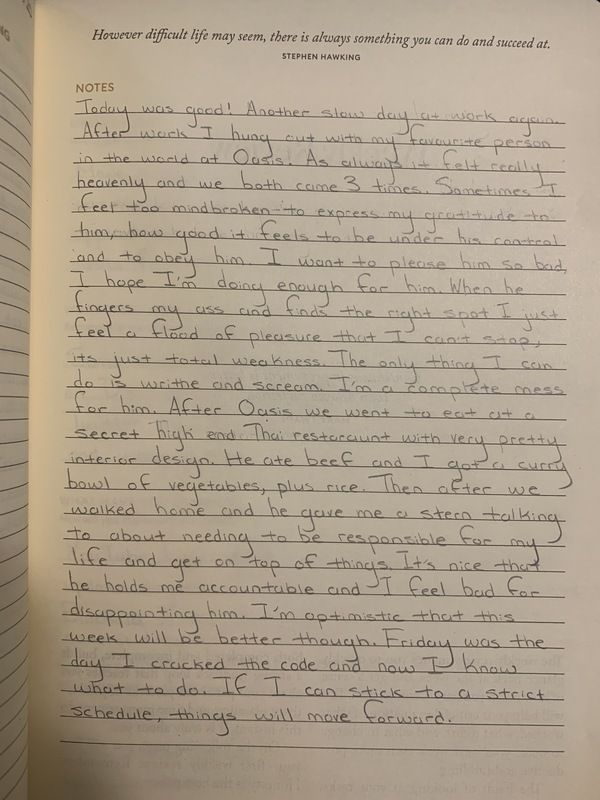 However difficult life may seem, there is always something you can do and succeed at.
STEPHEN HAWKING
NOTES
Today was good! Another slow day at work again.
After work I hung out with my favourite person
in the world at Oasis! As always it felt really
heavenly and we both came 3 times. Sometimes I
feel too mindbroken to express my gratitude to
him, how good it feels to be under his control
and to obey him. I want to please him so bad,
I hope I'm doing enough for him. When he
fingers my ass and finds the right spot I just
feel a flood of pleasure that I can't stop,
its just total weakness. The only thing I can
do is writhe and scream. I'm a complete mess
for him. After Oasis we went to eat at a
secret high end Thai restaraunt with very pretty
interior design. He ate beef and I got a curry
bowl of vegetables, plus rice. Then after we
walked home and he gave me a stern talking
to about needing to be responsible for my
life and get on top of things. It's nice that
he holds me accountable and I feel bad for
disappointing him. I'm optimistic that this
week will be better though. Friday was the
day I cracked the code and now I know
what to do. If I can stick to a strict
schedule, things will move forward.